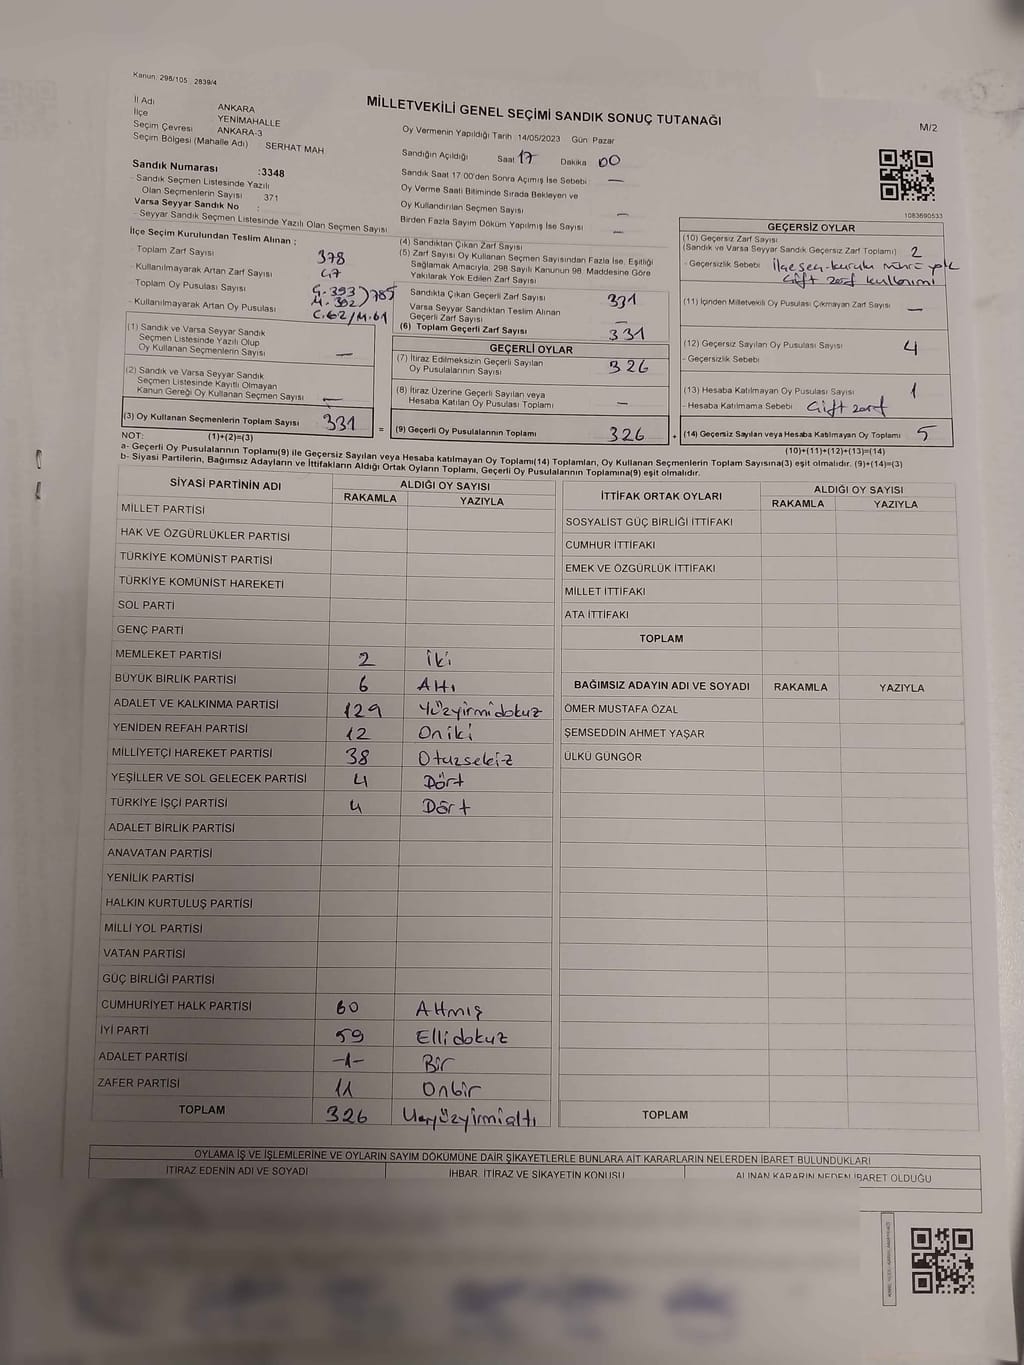 Kanun: 298/105 2839/4
MİLLETVEKİLİ GENEL SEÇİMİ SANDIK SONUÇ TUTANAĞI
M/2
İl Adı ANKARA
İlçe YENİMAHALLE
Seçim Çevresi ANKARA-3
Seçim Bölgesi (Mahalle Adı) SERHAT MAH.
Oy Vermenin Yapıldığı Tarih 14/05/2023 Gün Pazar
Sandığın Açıldığı Saat 17 Dakika 00
Sandık Saat 17:00'den Sonra Açılmış İse Sebebi : —
Oy Verme Saati Bitiminde Sırada Bekleyen ve
Oy Kullandırılan Seçmen Sayısı —
Birden Fazla Sayım Döküm Yapılmış İse Sayısı —
1083690533
Sandık Numarası :3348
- Sandık Seçmen Listesinde Yazılı
Olan Seçmenlerin Sayısı 371
Varsa Seyyar Sandık No :
- Seyyar Sandık Seçmen Listesinde Yazılı Olan Seçmen Sayısı
İlçe Seçim Kurulundan Teslim Alınan ;
- Toplam Zarf Sayısı 378
- Kullanılmayarak Artan Zarf Sayısı
- Toplam Oy Pusulası Sayısı G.393 785
- Kullanılmayarak Artan Oy Pusulası C.62/M.61
(1) Sandık ve Varsa Seyyar Sandık
Seçmen Listesinde Yazılı Olup
Oy Kullanan Seçmenlerin Sayısı —
(2) Sandık ve Varsa Seyyar Sandık
Seçmen Listesinde Kayıtlı Olmayan
Kanun Gereği Oy Kullanan Seçmen Sayısı —
(3) Oy Kullanan Seçmenlerin Toplam Sayısı 331
(4) Sandıktan Çıkan Zarf Sayısı
(5) Zarf Sayısı Oy Kullanan Seçmen Sayısından Fazla İse, Eşitliği
Sağlamak Amacıyla, 298 Sayılı Kanunun 98. Maddesine Göre
Yakılarak Yok Edilen Zarf Sayısı
Sandıkta Çıkan Geçerli Zarf Sayısı 331
Varsa Seyyar Sandıktan Teslim Alınan
Geçerli Zarf Sayısı —
(6) Toplam Geçerli Zarf Sayısı 331
GEÇERLİ OYLAR
(7) İtiraz Edilmeksizin Geçerli Sayılan
Oy Pusulalarının Sayısı 326
(8) İtiraz Üzerine Geçerli Sayılan veya
Hesaba Katılan Oy Pusulası Toplamı —
= (9) Geçerli Oy Pusulalarının Toplamı 326
GEÇERSİZ OYLAR
(10) Geçersiz Zarf Sayısı
(Sandık ve Varsa Seyyar Sandık Geçersiz Zarf Toplamı) 2
- Geçersizlik Sebebi
Çift zarf kullanımı
(11) İçinden Milletvekili Oy Pusulası Çıkmayan Zarf Sayısı —
(12) Geçersiz Sayılan Oy Pusulası Sayısı 4
- Geçersizlik Sebebi
(13) Hesaba Katılmayan Oy Pusulası Sayısı 1
- Hesaba Katılmama Sebebi Çift zarf
+ (14) Geçersiz Sayılan veya Hesaba Katılmayan Oy Toplamı 5
NOT: (1)+(2)=(3) (10)+(11)+(12)+(13)=(14)
a- Geçerli Oy Pusulalarının Toplamı(9) ile Geçersiz Sayılan veya Hesaba Katılmayan Oy Toplamı(14) Toplamları, Oy Kullanan Seçmenlerin Toplam Sayısına(3) eşit olmalıdır. (9)+(14)=(3)
b- Siyasi Partilerin, Bağımsız Adayların ve İttifakların Aldığı Ortak Oyların Toplamı, Geçerli Oy Pusulalarının Toplamına(9) eşit olmalıdır.
SİYASİ PARTİNİN ADI ALDIĞI OY SAYISI
RAKAMLA YAZIYLA
MİLLET PARTİSİ
HAK VE ÖZGÜRLÜKLER PARTİSİ
TÜRKİYE KOMÜNİST PARTİSİ
TÜRKİYE KOMÜNİST HAREKETİ
SOL PARTİ
GENÇ PARTİ
MEMLEKET PARTİSİ 2 İki
BÜYÜK BİRLİK PARTİSİ 6 Altı
ADALET VE KALKINMA PARTİSİ 129 Yüzyirmidokuz
YENİDEN REFAH PARTİSİ 12 Oniki
MİLLİYETÇİ HAREKET PARTİSİ 38 Otuzsekiz
YEŞİLLER VE SOL GELECEK PARTİSİ 4 Dört
TÜRKİYE İŞÇİ PARTİSİ 4 Dört
ADALET BİRLİK PARTİSİ
ANAVATAN PARTİSİ
YENİLİK PARTİSİ
HALKIN KURTULUŞ PARTİSİ
MİLLİ YOL PARTİSİ
VATAN PARTİSİ
GÜÇ BİRLİĞİ PARTİSİ
CUMHURİYET HALK PARTİSİ 60 Altmış
İYİ PARTİ 59 Ellidokuz
ADALET PARTİSİ -1- Bir
ZAFER PARTİSİ 11 Onbir
TOPLAM 326 Üçyüzyirmialtı
İTTİFAK ORTAK OYLARI ALDIĞI OY SAYISI
RAKAMLA YAZIYLA
SOSYALİST GÜÇ BİRLİĞİ İTTİFAKI
CUMHUR İTTİFAKI
EMEK VE ÖZGÜRLÜK İTTİFAKI
MİLLET İTTİFAKI
ATA İTTİFAKI
TOPLAM
BAĞIMSIZ ADAYIN ADI VE SOYADI RAKAMLA YAZIYLA
ÖMER MUSTAFA ÖZAL
ŞEMSEDDİN AHMET YAŞAR
ÜLKÜ GÜNGÖR
TOPLAM
OYLAMA İŞ VE İŞLEMLERİNE VE OYLARIN SAYIM DÖKÜMÜNE DAİR ŞİKAYETLERLE BUNLARA AİT KARARLARIN NELERDEN İBARET BULUNDUKLARI
İTİRAZ EDENİN ADI VE SOYADI İHBAR, İTİRAZ VE ŞİKAYETİN KONUSU ALINAN KARARIN NEDEN İBARET OLDUĞU